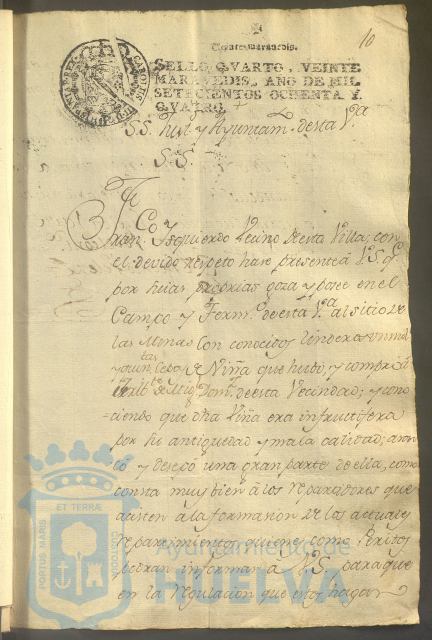 10
SELLO QVARTO, VEINTE
MARAVEDIS, AÑO DE MIL
SETECIENTOS OCHENTA Y
QVATRO.
S.S. Just.ª y Ayuntam.to desta V.ª
S.S.
Fran.co Isquierdo Vecino de esta Villa, con
el devido respeto hase presente á V.S. q.e
por suias propias goza y posee en el
Campo y Term.o de esta V.ª al sitio de
las Minas con conocidos linderos un mil
y quin.tas Cepas de Viña que hubo, y compró á
de esta Vecindad; y cono-
=ciendo que dha Viña era infructifera
por su antiguedad y mala calidad; arran
có y desepó una gran parte de ella, como
consta muy bien á los Repartidores que
asisten á la formacion de los actuales
Repartimientos, quienes como Peritos
podran informar á V.S. para que
en la regulacion que estos hagan
PORTUS MARIS
ET TERRÆ
CUSTODIA
Ayuntamiento de
HUELVA